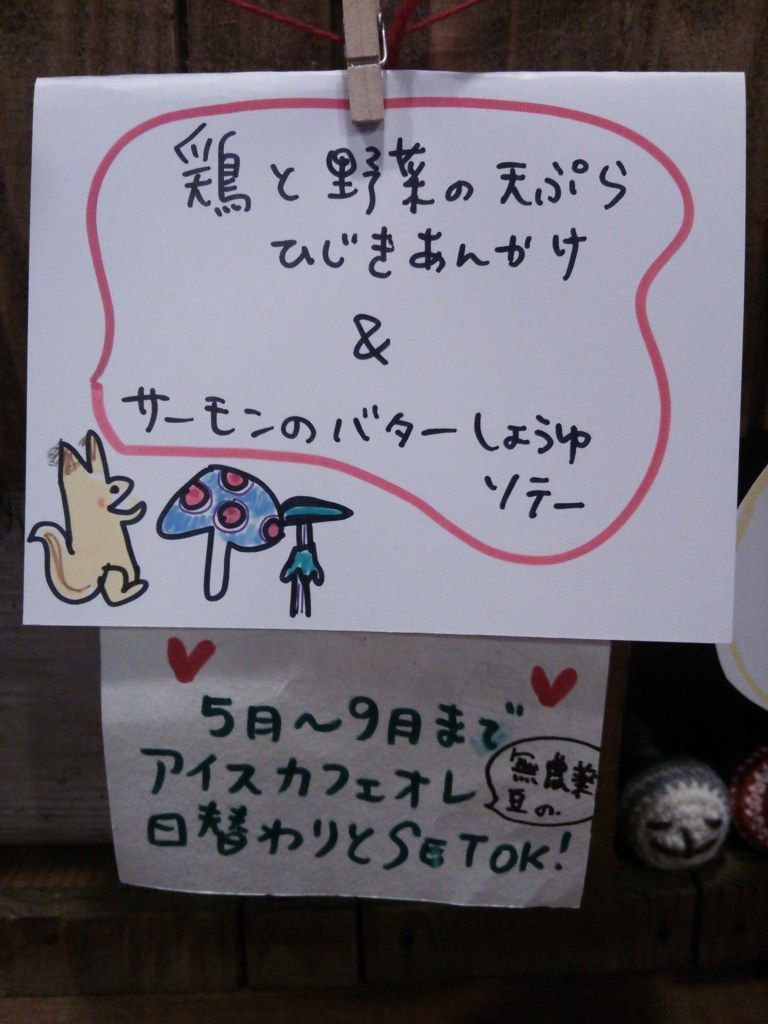 鶏と野菜の天ぷら
ひじきあんかけ
&
サーモンのバターしょうゆ
ソテー
5月〜9月まで
アイスカフェオレ
無農薬
豆の
日替わりとSETOK!